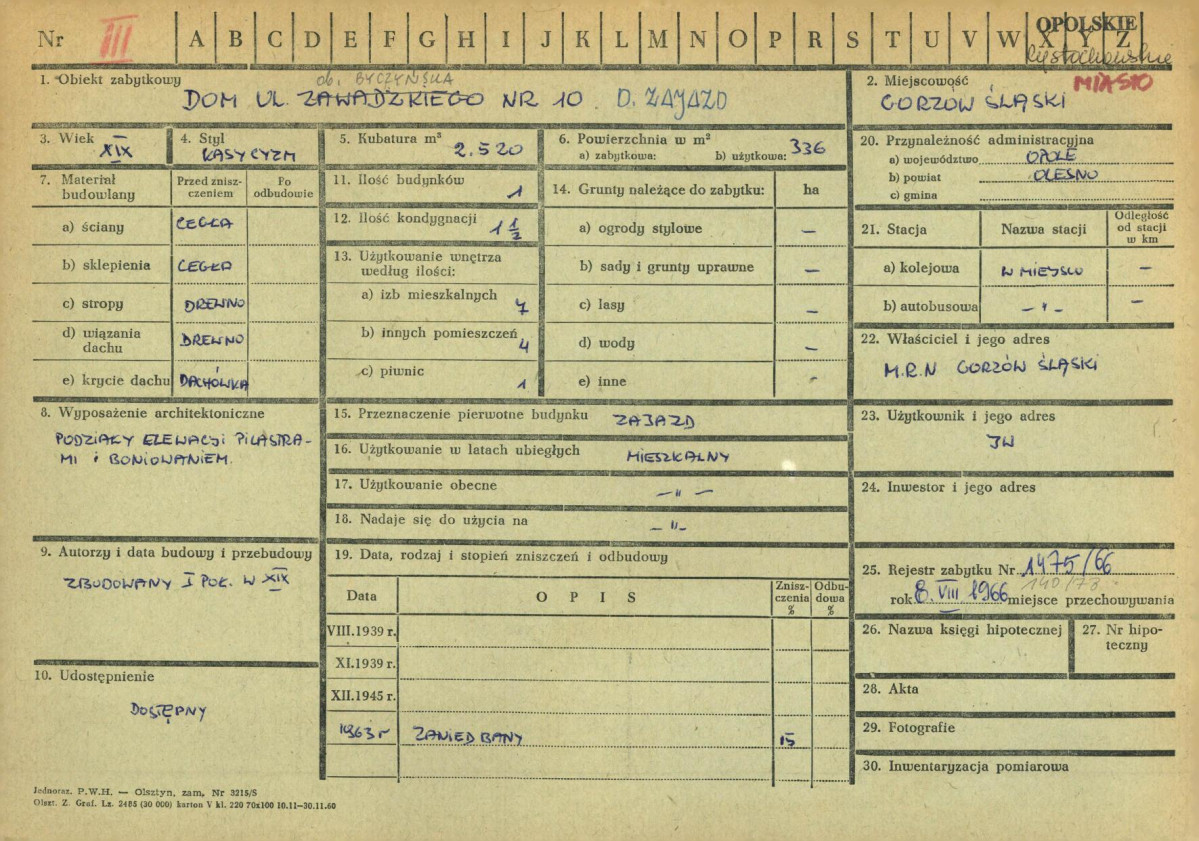 Nr III A B C D E F G H I J K L M N O P R S T U V W X Y Z
OPOLSKIE
Częstochowskie
1. Obiekt zabytkowy
ob. BYCZYŃSKA
DOM UL. ZAWADZKIEGO NR 10. D. ZAJAZD
2. Miejscowość MIASTO
GORZÓW ŚLĄSKI
3. Wiek
XIX
4. Styl
KLASYCYZM
5. Kubatura m³
2.520
6. Powierzchnia w m²
a) zabytkowa: b) użytkowa: 336
7. Materiał budowlany
Przed zniszczeniem
Po odbudowie
a) ściany CEGŁA
b) sklepienia CEGŁA
c) stropy DREWNO
d) wiązania dachu DREWNO
e) krycie dachu DACHÓWKA
8. Wyposażenie architektoniczne
PODZIAŁY ELEWACJI PILASTRA-
MI i BONIOWANIEM.
9. Autorzy i data budowy i przebudowy
ZBUDOWANY I POŁ. W XIX
10. Udostępnienie
DOSTĘPNY
11. Ilość budynków 1
12. Ilość kondygnacji 1 1/2
13. Użytkowanie wnętrza
według ilości:
a) izb mieszkalnych 7
b) innych pomieszczeń 4
c) piwnic 1
14. Grunty należące do zabytku: ha
a) ogrody stylowe —
b) sady i grunty uprawne —
c) lasy —
d) wody —
e) inne -
15. Przeznaczenie pierwotne budynku ZAJAZD
16. Użytkowanie w latach ubiegłych MIESZKALNY
17. Użytkowanie obecne — " —
18. Nadaje się do użycia na — " —
19. Data, rodzaj i stopień zniszczeń i odbudowy
Data OPIS Zniszczenia % Odbudowa %
VIII.1939 r.
XI.1939 r.
XII.1945 r.
1963 r ZANIEDBANY 15
20. Przynależność administracyjna
a) województwo OPOLE
b) powiat OLESNO
c) gmina
21. Stacja Nazwa stacji Odległość od stacji w km
a) kolejowa W MIEJSCU —
b) autobusowa — " — —
22. Właściciel i jego adres
M.R.N GORZÓW ŚLĄSKI
23. Użytkownik i jego adres
JW
24. Inwestor i jego adres
25. Rejestr zabytku Nr 1475/66
140/73
rok 8. VIII 1966 miejsce przechowywania
26. Nazwa księgi hipotecznej
27. Nr hipo-
teczny
28. Akta
29. Fotografie
30. Inwentaryzacja pomiarowa
Jednoraz. P.W.H. — Olsztyn, zam. Nr 3215/S
Olszt. Z. Graf. Lz. 2485 (30 000) karton V kl. 220 70x100 10.11—30.11.60